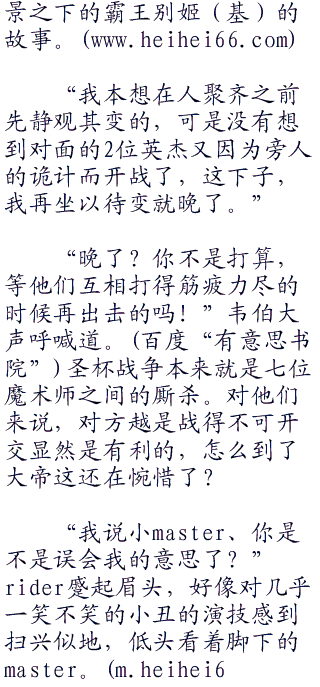 景之下的霸王别姬（基）的
故事。(www.heihei66.com)
“我本想在人聚齐之前
先静观其变的，可是没有想
到对面的2位英杰又因为旁人
的诡计而开战了，这下子，
我再坐以待变就晚了。”
“晚了？你不是打算，
等他们互相打得筋疲力尽的
时候再出去的吗！”韦伯大
声呼喊道。(百度“有意思书
院”)圣杯战争本来就是七位
魔术师之间的厮杀。对他们
来说，对方越是战得不可开
交显然是有利的，怎么到了
大帝这还在惋惜了？
“我说小master、你是
不是误会我的意思了？”
rider蹙起眉头，好像对几乎
一笑不笑的小丑的演技感到
扫兴似地，低头看着脚下的
master。(m.heihei6